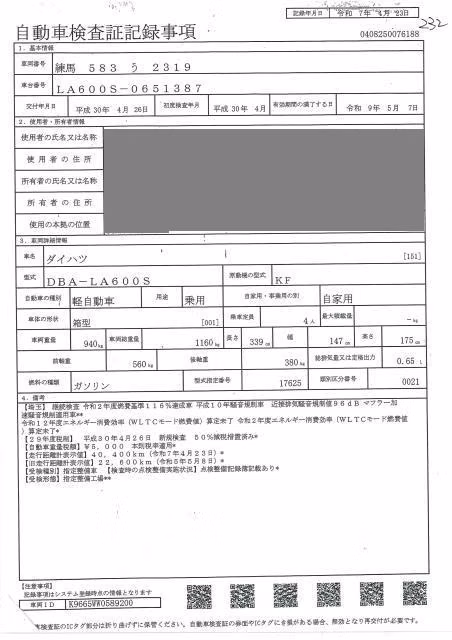 記録年月日 令和 7年 4月 23日
232
自動車検査証記録事項
0408250076188
1．基本情報
車両番号 練馬 583 う 2319
車台番号 LA600S-0651387
交付年月日 平成 30年 4月 26日 初度検査年月 平成 30年 4月 有効期間の満了する日 令和 9年 5月 7日
2．使用者・所有者情報
使用者の氏名又は名称
使用者の住所
所有者の氏名又は名称
所有者の住所
使用の本拠の位置
3．車両詳細情報
車名 ダイハツ [151]
型式 DBA-LA600S 原動機の型式 KF
自動車の種別 軽自動車 用途 乗用 自家用・事業用の別 自家用
車体の形状 箱型 [001] 乗車定員 4人 最大積載量 -kg
車両重量 940kg 車両総重量 1160kg 長さ 339cm 幅 147cm 高さ 175cm
前軸重 560kg 後軸重 380kg 総排気量又は定格出力 0.65 L
燃料の種類 ガソリン 型式指定番号 17625 類別区分番号 0021
4．備考
【埼玉】 継続検査 令和2年度燃費基準116%達成車 平成10年騒音規制車 近接排気騒音規制値96dB マフラー加
速騒音規制適用車**
令和12年度エネルギー消費効率（WLTCモード燃費値）算定未了 令和2年度エネルギー消費効率（WLTCモード燃費値
）算定未了*
【29年度税制】 平成30年4月26日 新規検査 50%減税措置済み*
【自動車重量税額】¥5，000 本則税率適用*
【走行距離計表示値】40，400km（令和7年4月23日）*
【旧走行距離計表示値】22，600km（令和5年5月8日）*
【受検種別】指定整備車 【検査時の点検整備実施状況】点検整備記録簿記載あり*
【受検形態】指定整備工場**
【注意事項】
記録事項はシステム登録時点の情報となります
車両ID K9665WW0589200
車検査証のICタグ部分は折り曲げずに保管ください。自動車検査証の券面やICタグに名損がある場合、無効となり再交付が必要です。